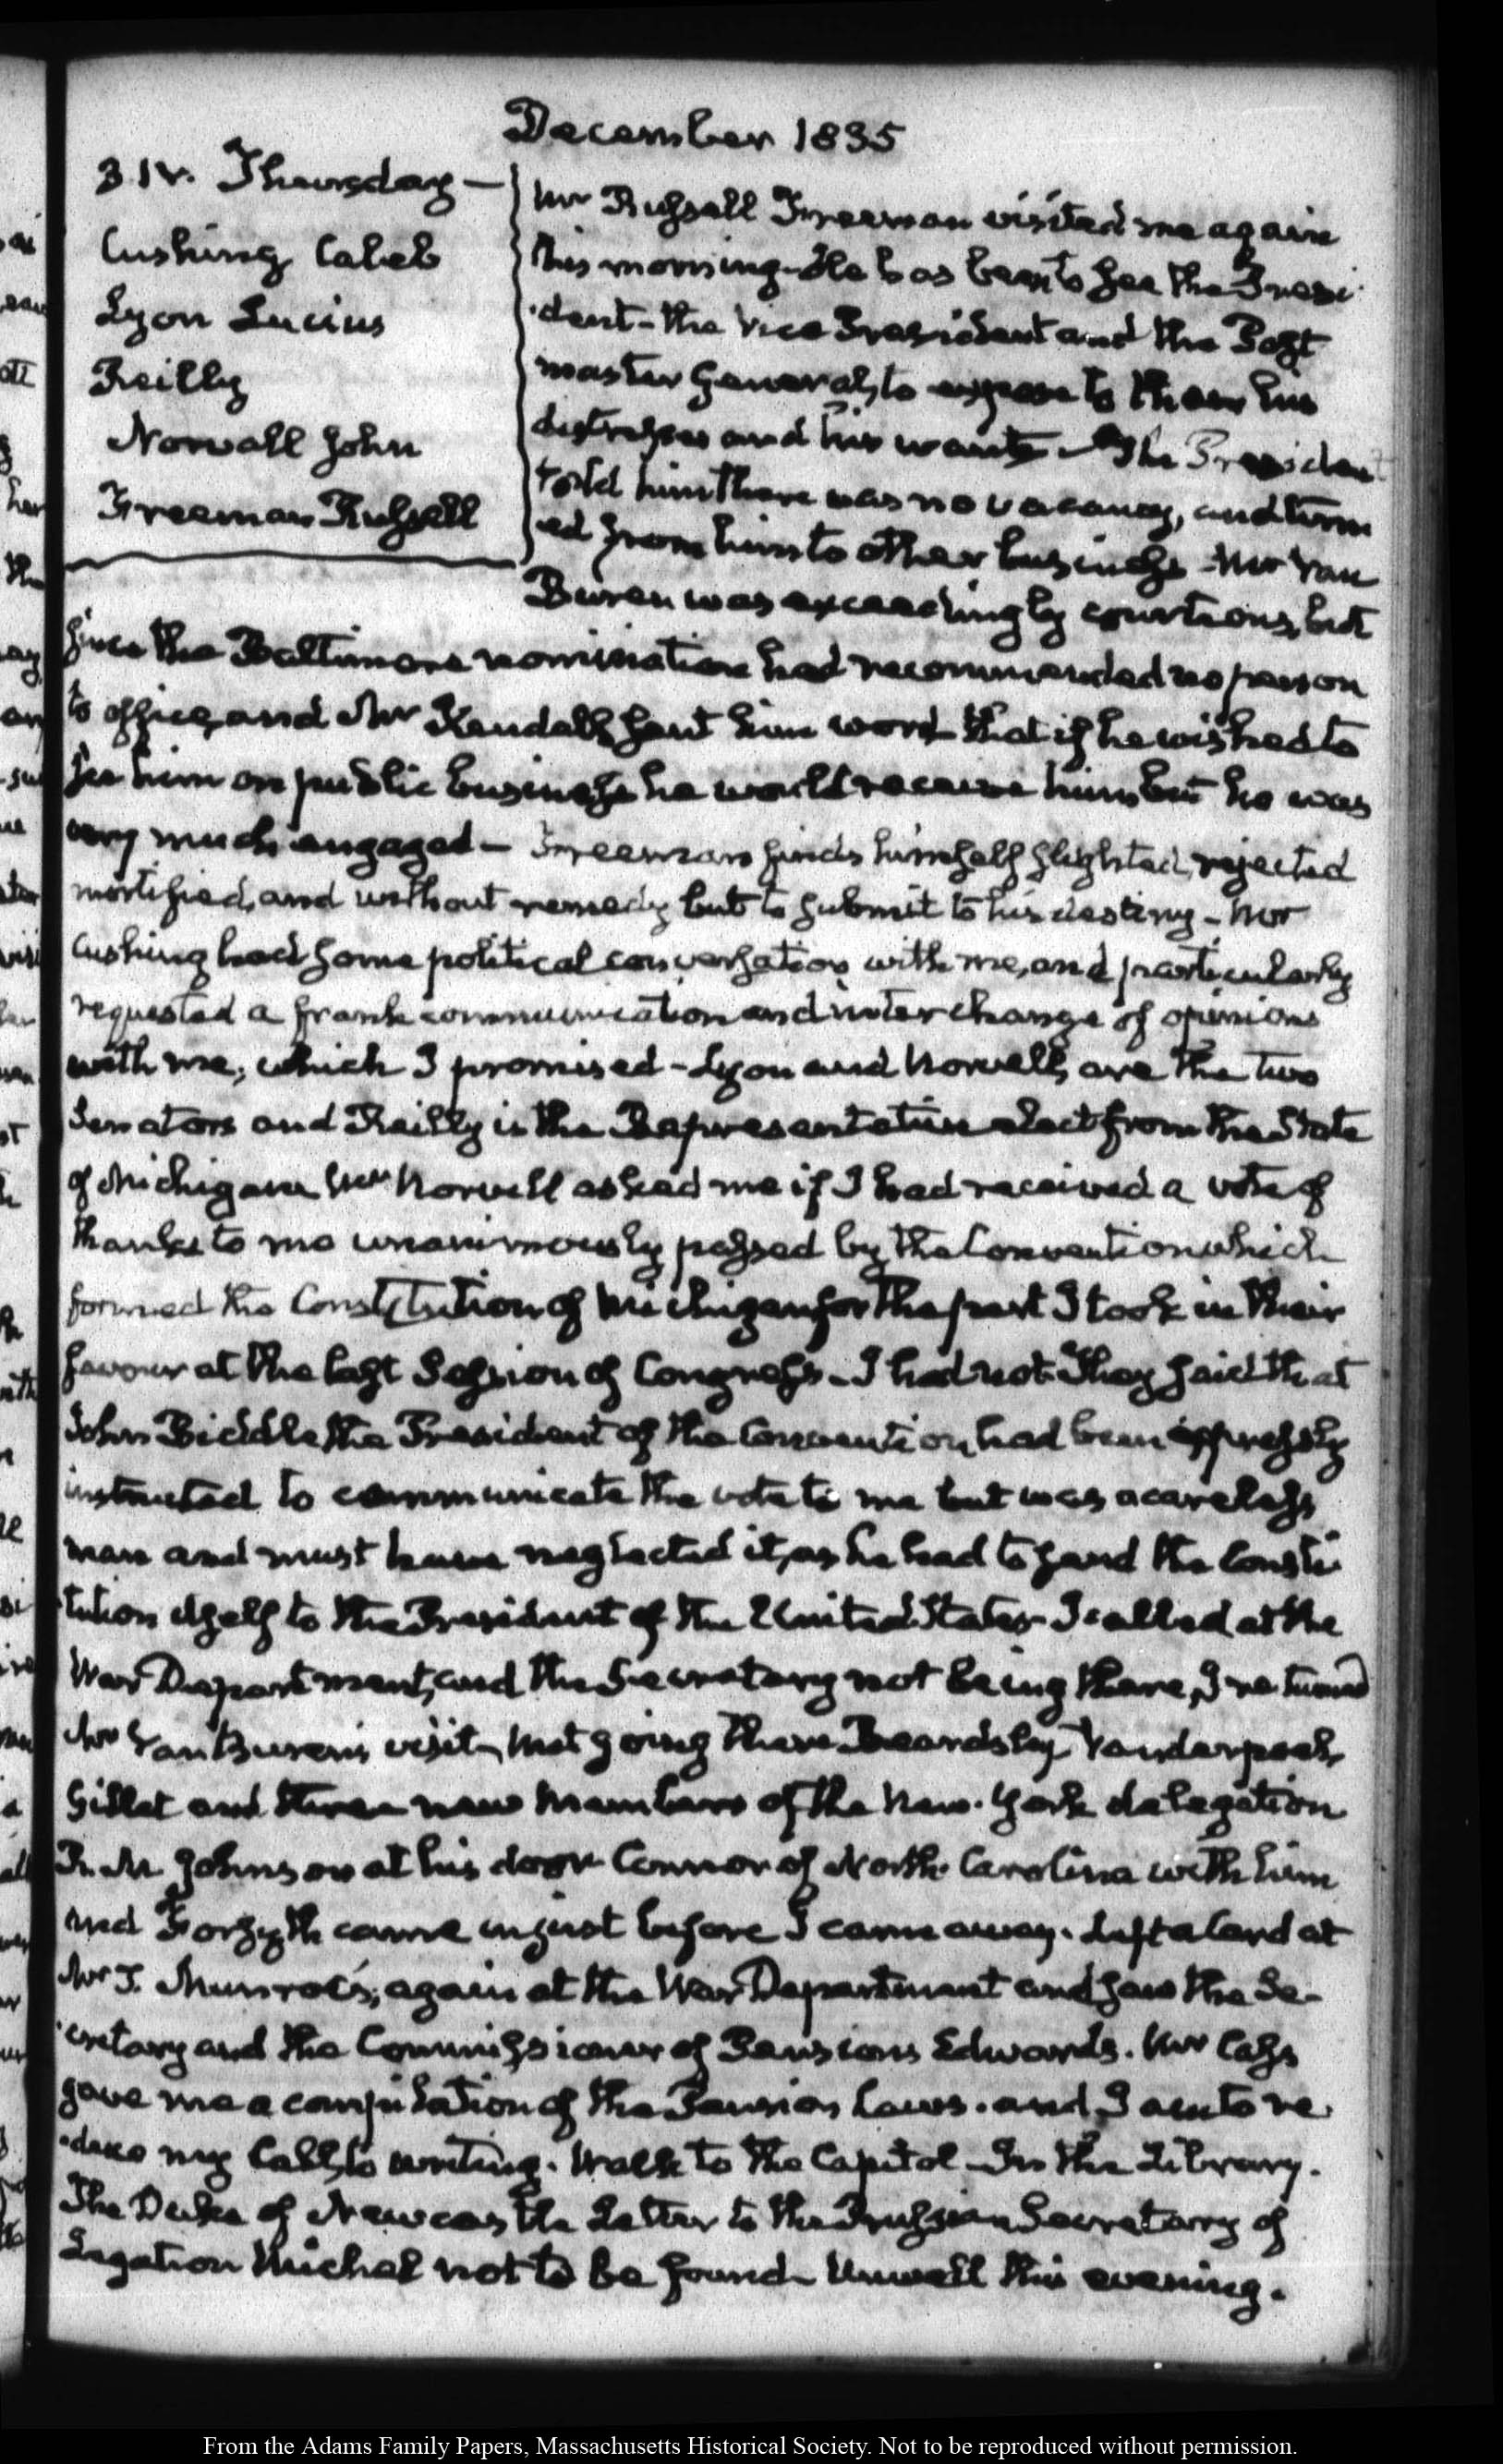 December 1835
3 IV. Thursday—
Cushing Caleb
Lyon Lucius
Reilly
Norvall John
Freeman Russell
Mr Russell Freeman visited me again
this morning. He has been to see the Presi-
-dent—the Vice President and the Post
master General, to expose to them his
distresses and his wants—The President
told him there was no vacancy, and turn
-ed from him to other business—Mr Van
Buren was exceedingly courteous, but
since the Baltimore nomination had recommended no person
to office, and Mr Kendall sent him word that if he wished to
see him on public business he would receive him but he was
very much engaged—Freeman finds himself slighted, rejected
mortified, and without remedy but to submit to his destiny—Mr
Cushing had some political conversation with me, and particularly
requested a frank communication and interchange of opinions
with me, which I promised—Lyon and Norvell, are the two
Senators and Reilly is the Representative elect from the State
of Michigan. Mr Norvell asked me if I had received a vote of
thanks to me unanimously passed by the Convention which
formed the Constitution of Michigan for the part I took in their
favour at the last Session of Congress—I had not. They said that
John Biddle the President of the Convention, had been expressly
instructed to communicate the vote to me but was a careless
man and must have neglected it, as he had to send the Consti-
tution itself to the President of the United States. I called at the
War Department, and the Secretary not being there, I returned
Mr Van Buren's visit, met going there Beardsley, Vanderpoel,
Gillet and three new Members of the New-York delegation
R. M. Johnson at his door Connor of North Carolina with him
and Forsyth came in just before I came away. Left a Card at
Mr T. Munroe's; again at the War Department and saw the Se-
-cretary and the Commissioner of Pensions Edwards. Mr Cass
gave me a compilation of the Pension Laws. and I am to re-
-duce my Call, to writing. Walk to the Capitol—In the Library.
The Duke of Newcastle Letter to the Prussian Secretary of
Legation Michel not to be found—Unwell this evening.
From the Adams Family Papers, Massachusetts Historical Society. Not to be reproduced without permission.